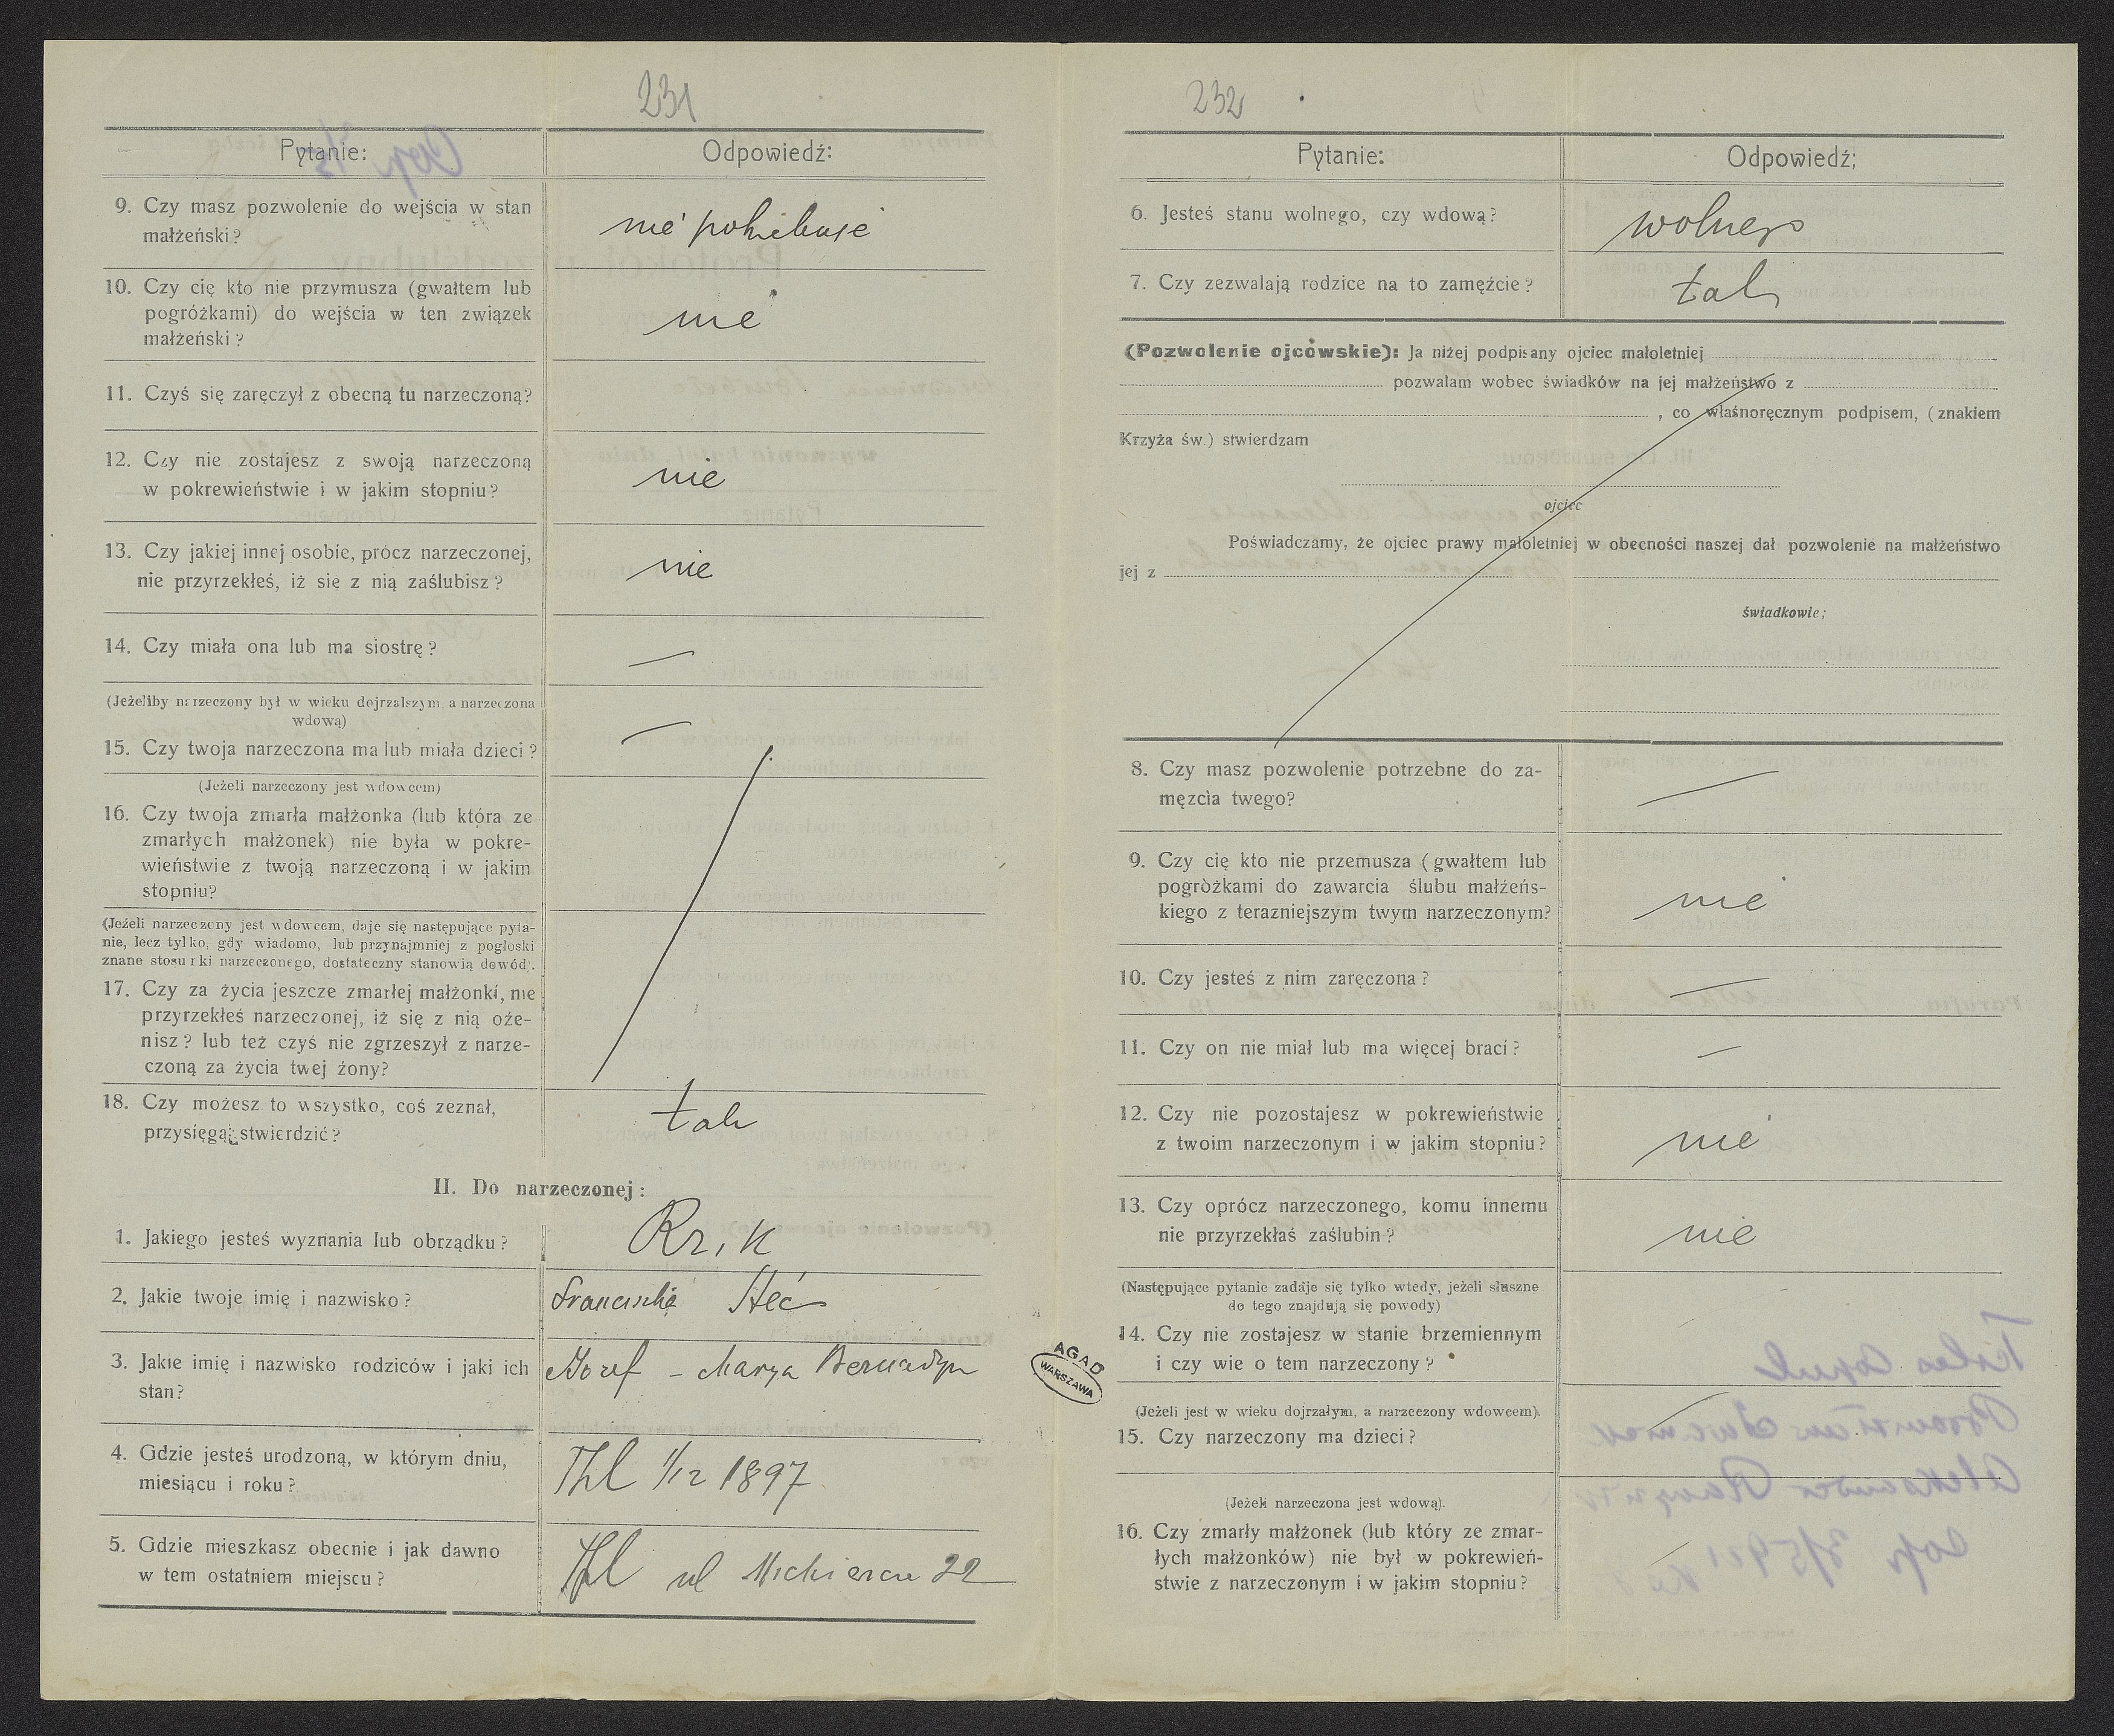 231
Pytanie: Odpowiedź:
9. Czy masz pozwolenie do wejścia w stan
małżeński?
nie potrzebuje
10. Czy cię kto nie przymusza (gwałtem lub
pogróżkami) do wejścia w ten związek
małżeński?
nie
11. Czyś się zaręczył z obecną tu narzeczoną?
12. Czy nie zostajesz z swoją narzeczoną
w pokrewieństwie i w jakim stopniu?
nie
13. Czy jakiej innej osobie, prócz narzeczonej,
nie przyrzekłeś, iż się z nią zaślubisz?
nie
14. Czy miała ona lub ma siostrę?
—
(Jeżeliby narzeczony był w wieku dojrzalszym, a narzeczona
wdową)
15. Czy twoja narzeczona ma lub miała dzieci?
—
(Jeżeli narzeczony jest wdowcem)
16. Czy twoja zmarła małżonka (lub która ze
zmarłych małżonek) nie była w pokre-
wieństwie z twoją narzeczoną i w jakim
stopniu?
(Jeżeli narzeczony jest wdowcem, daje się następujące pyta-
nie, lecz tylko, gdy wiadomo, lub przynajmniej z pogłoski
znane stosunki narzeczonego, dostateczny stanowią dowód).
17. Czy za życia jeszcze zmarłej małżonki, nie
przyrzekłeś narzeczonej, iż się z nią oże-
nisz? lub też czyś nie zgrzeszył z narze-
czoną za życia twej żony?
18. Czy możesz to wszystko, coś zeznał,
przysięgą stwierdzić?
tak
II. Do narzeczonej:
1. Jakiego jesteś wyznania lub obrządku?
Rz. K
2. Jakie twoje imię i nazwisko?
Franciszka Steć
3. Jakie imię i nazwisko rodziców i jaki ich
stan?
Józef - Marya Bernadyn
4. Gdzie jesteś urodzoną, w którym dniu,
miesiącu i roku?
Thl 1/12 1897
5. Gdzie mieszkasz obecnie i jak dawno
w tem ostatniem miejscu?
Thl ul 22
232
Pytanie: Odpowiedź;
6. Jesteś stanu wolnego, czy wdową?
wolnego
7. Czy zezwalają rodzice na to zamęźcie?
tak
(Pozwolenie ojcowskie): Ja niżej podpisany ojciec małoletniej
pozwalam wobec świadków na jej małżeństwo z
, co własnoręcznym podpisem, (znakiem
Krzyża św.) stwierdzam
ojciec
Poświadczamy, że ojciec prawy małoletniej w obecności naszej dał pozwolenie na małżeństwo
jej z
świadkowie;
8. Czy masz pozwolenie potrzebne do za-
męzcia twego?
—
9. Czy cię kto nie przemusza (gwałtem lub
pogróżkami do zawarcia ślubu małżeńs-
kiego z terazniejszym twym narzeczonym?
nie
10. Czy jesteś z nim zaręczona?
—
11. Czy on nie miał lub ma więcej braci?
—
12. Czy nie pozostajesz w pokrewieństwie
z twoim narzeczonym i w jakim stopniu?
nie
13. Czy oprócz narzeczonego, komu innemu
nie przyrzekłaś zaślubin?
nie
(Następujące pytanie zadaje się tylko wtedy, jeżeli słuszne
do tego znajdują się powody)
14. Czy nie zostajesz w stanie brzemiennym
i czy wie o tem narzeczony?
AGAD
WARSZAWA
(Jeżeli jest w wieku dojrzałym, a narzeczony wdowcem).
15. Czy narzeczony ma dzieci?
—
(Jeżeli narzeczona jest wdową).
16. Czy zmarły małżonek (lub który ze zmar-
łych małżonków) nie był w pokrewień-
stwie z narzeczonym i w jakim stopniu?
—